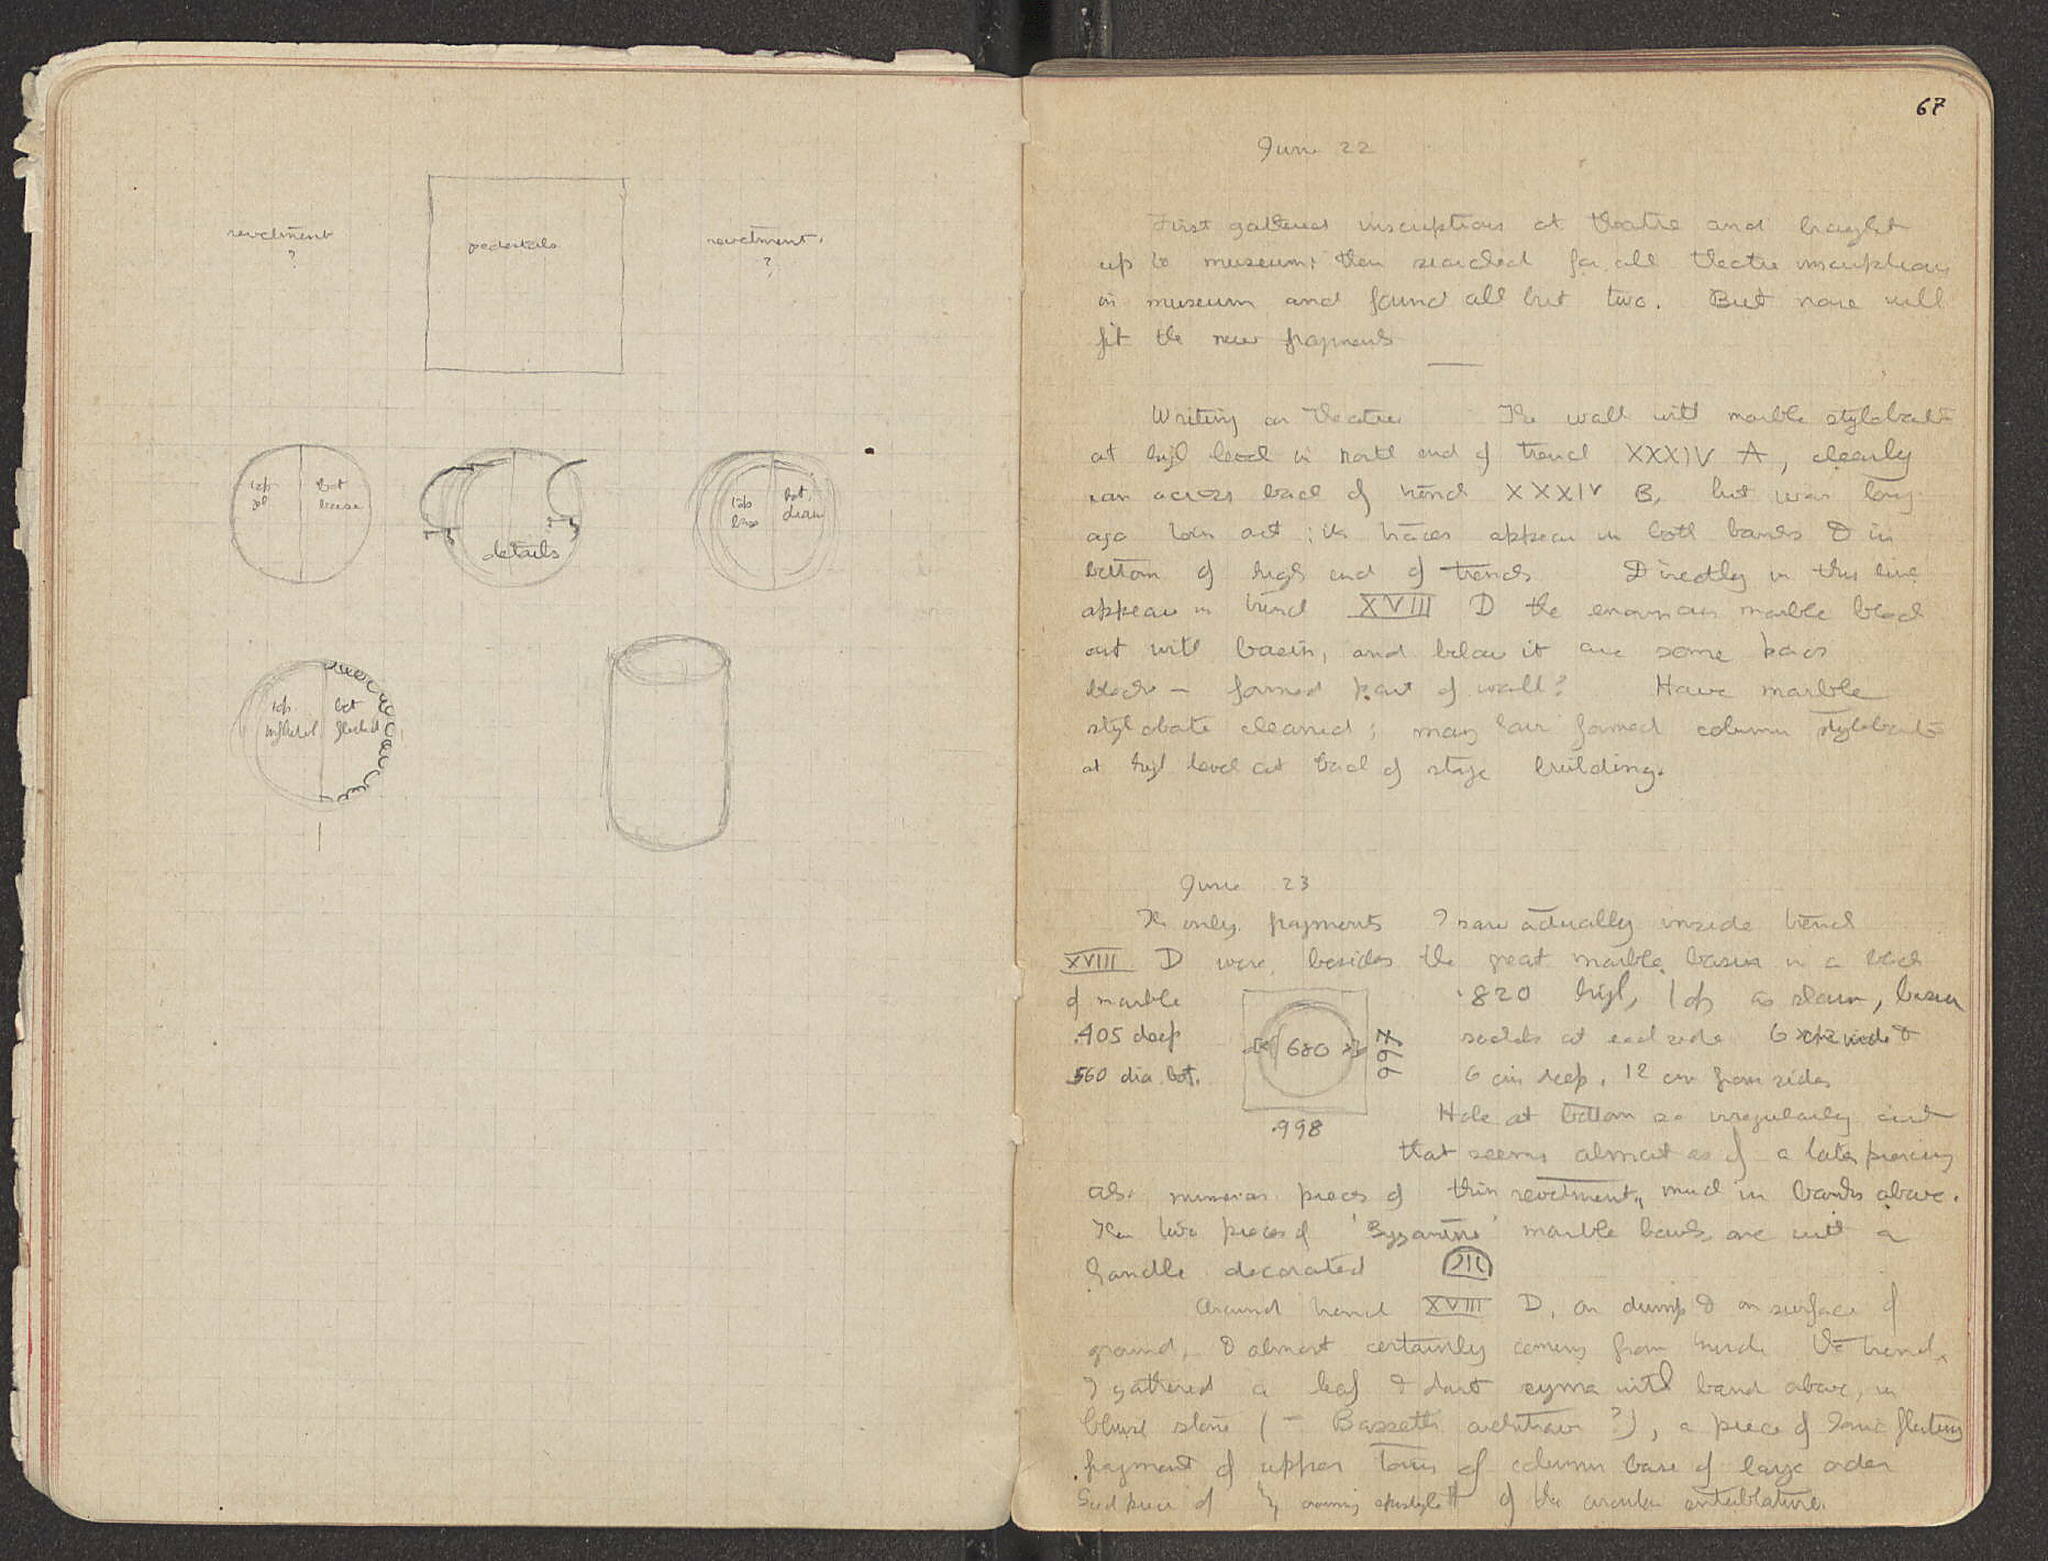 revetment
?
pedestals
revetment
?
top
bot
base
details
top
base
bot
drum
top
unfluted
bot
fluted
67
June 22
First gathered inscriptions at theatre and brought
up to museum; then searched for all theatre inscriptions
in museum and found all but two. But none will
fit the new fragments
Writing on theatre The wall with marble stylobate
at high level in north end of trench XXXIV A, clearly
ran across back of trench XXXIV B, but was long
ago torn out; its traces appear in both banks & in
bottom of high end of trench Directly in this line
appear in trench XVIII D the enormous marble block
cut with basin, and below it are some poros
blocks — formed part of wall? Have marble
stylobate cleaned; may have formed column stylobate
at high level at back of stage building.
June 23
The only fragments I saw actually inside trench
XVIII D were, besides the great marble basin in a block
of marble
.820 high, top as shown, basin
.405 deep
680
.997
sockets at each side 6 wide &
.560 dia bot.
6 cm deep, 12 cm from sides
.998
Hole at bottom so irregularly cut
that seems almost as if a later piercing
also numerous pieces of thin revetment, much in banks above.
Then two pieces of 'Byzantine' marble bowls, one with a
handle decorated
Around trench XVIII D, on dump & on surface of
ground, & almost certainly coming from inside the trench,
I gathered a leaf & dart cyma with band above, in
bluish stone (= Bassett's architrave?), a piece of Ionic fluting
fragment of upper torus of column base of large order
piece of crowning epistyle of the circular entablature.